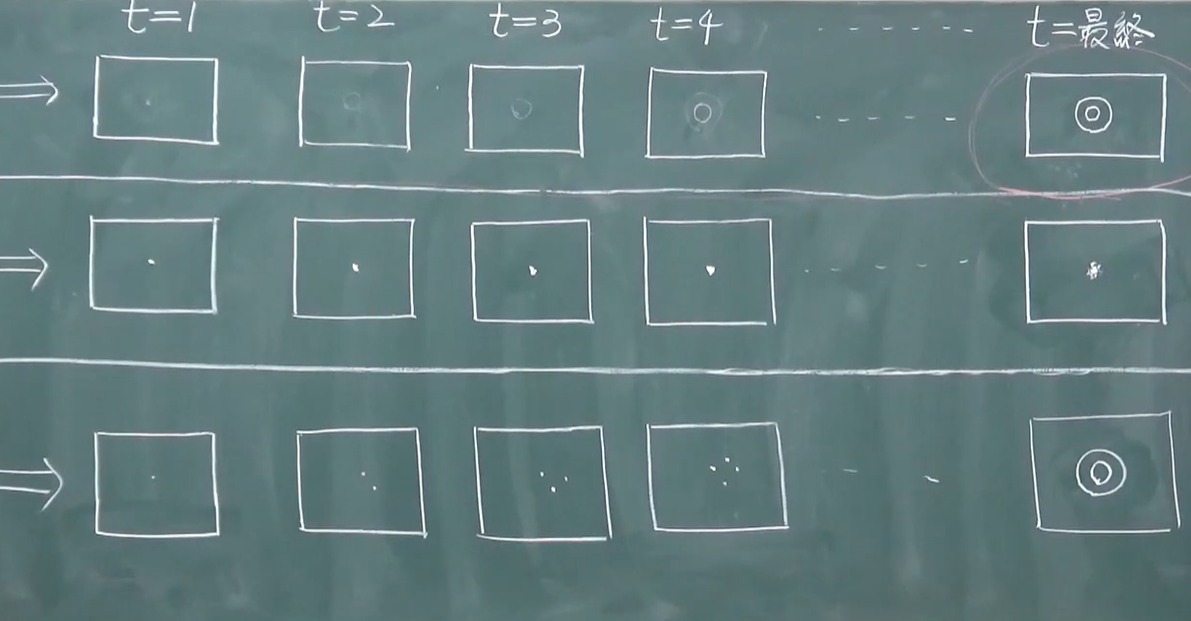 t=1 t=2 t=3 t=4 t=最終